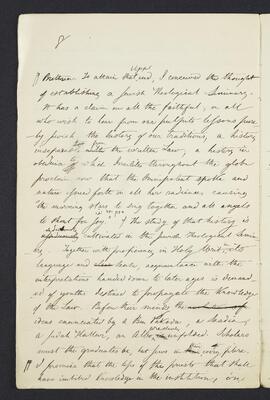 8
upper
Brethren. To attain that end, I conceived the thought
of establishing a Jewish Theological Seminary.
It has a claim on all the faithful, on all
who wish to hear from our pulpits lessons pure
by which the history of our traditions, a history
inseparable the written Law, a history in
obedience to which Israelites throughout the globe
proclaim now that the Omnipotent spoke and
nature stood forth in all her radiance, causing
the morning stars to sing together and all angels
to shout for joy. The study of that history is
cultivated in the Jewish Theological Semi-
nary. Together with proficiency in Holy Writ, its
language and acquaintance with the
interpretations handed down to later ages is demand-
ed of youths destined to propagate the knowledge
of the Law. Before their minds the
ideas enunciated by a Ben Pakuda, a Saadia,
a Judah Hallevi, an Albo unfolded. Scholars
must the graduates be, but pure in every fibre.
I promise that the lips of the priests that shall
have imbibed knowledge in the institution,